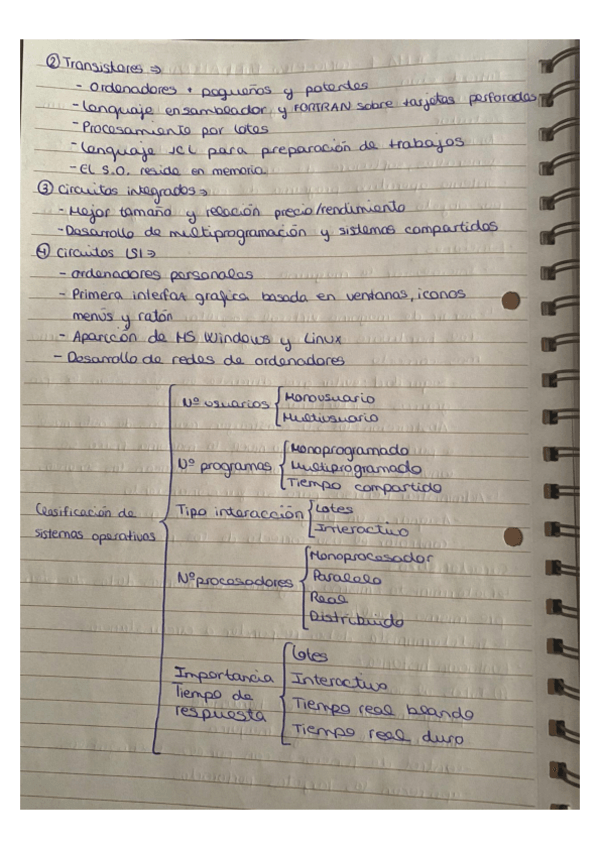 ② Transistores ⇒
- Ordenadores + pequeños y potentes
- Lenguaje ensamblador y FORTRAN sobre tarjetas perforadas
- Procesamiento por lotes
- Lenguaje JCL para preparación de trabajos
- EL S.O. reside en memoria
③ Circuitos integrados ⇒
- Mejor tamaño y relación precio/rendimiento
- Desarrollo de multiprogramación y sistemas compartidos
④ Circuitos LSI ⇒
- ordenadores personales
- Primera interfaz grafica basada en ventanas, iconos
menús y ratón
- Aparición de MS Windows y Linux
- Desarrollo de redes de ordenadores
Clasificación de
sistemas operativos
Nº usuarios
Monousuario
Multiusuario
Nº programas
Monoprogramado
Multiprogramado
Tiempo compartido
Tipo interacción
Lotes
Interactivo
Nº procesadores
Monoprocesador
Paralelo
Real
Distribuido
Importancia
Tiempo de
respuesta
Lotes
Interactivo
Tiempo real blando
Tiempo real duro